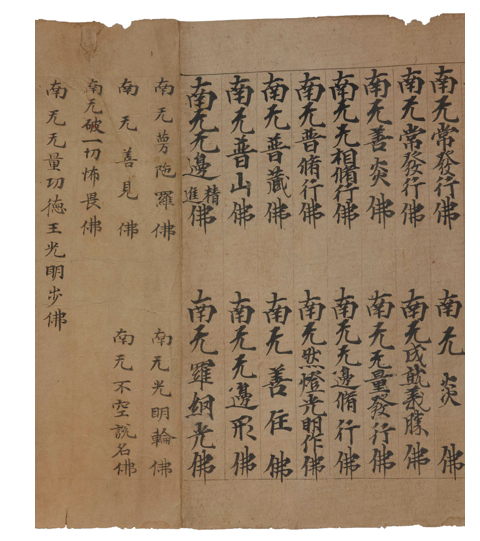 南无常發行佛 南无炎佛
南无常發行佛 南无成就義勝佛
南无善炎佛 南无无量發行佛
南无无相脩行佛 南无无邊脩行佛
南无普脩行佛 南无然燈光明作佛
南无普藏佛 南无善住佛
南无普山佛 南无无邊形佛
南无无邊精進佛 南无羅網光佛
南无蔓陁羅佛 南无光明輪佛
南无善見佛 南无不空說名佛
南无破一切怖畏佛
南无无量功德王光明步佛